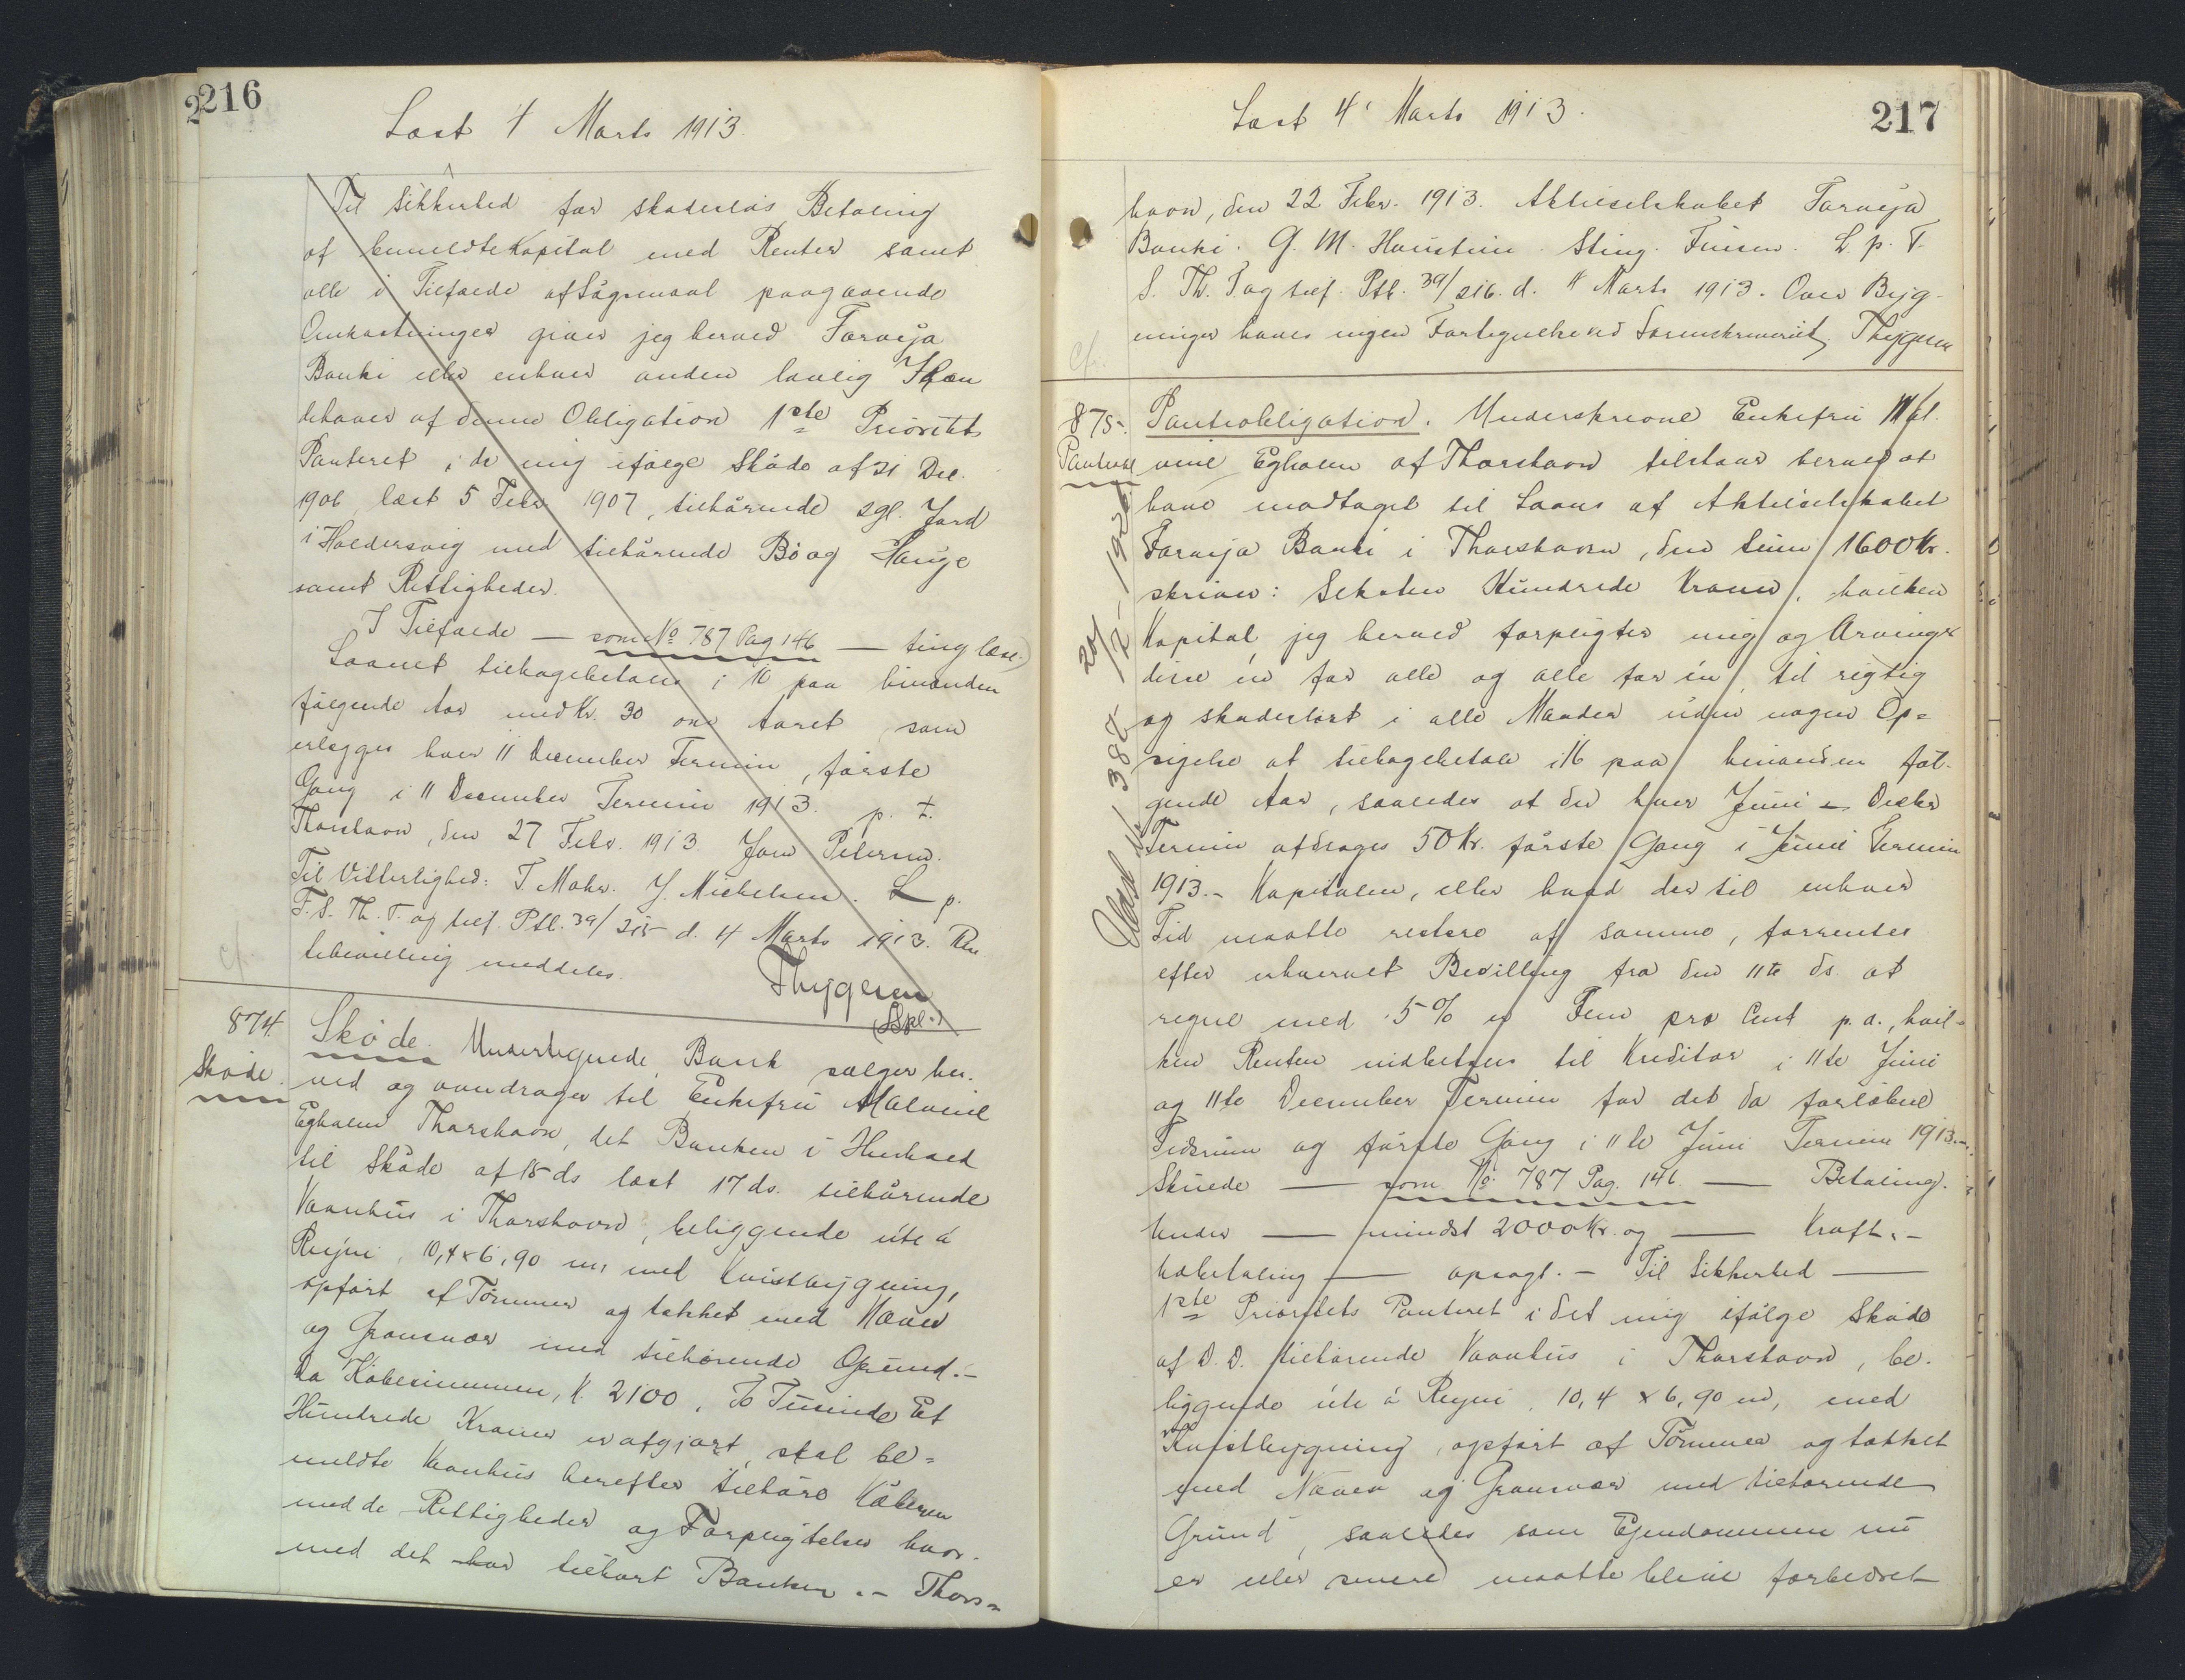 216
Læst 4 Marts 1913.
Til Sikkerhed for skadesløs Betaling
af bemeldte Kapital med Renter samt
alle i Tilfælde af Søgsmaal paagaaende
Omkostninger giver jeg herved Føroya
Banki eller enhver anden lovlig Ihæn
dehaver af denne Obligation 1ste Prioritets
Panteret i de mig ifølge Skøde af 31 Dec.
1906, læst 5 Febr 1907, tilhørende 2gl. Jord
i Haldersvig med tilhørende Bø og Hauge
samt Rettigheder.
I Tilfælde — som No 787 Pag 146 — ting læse.)
Laanet tilbagebetales i 10 paa hinanden
følgende Aar med Kr. 30 om Aaret, som
erlægges hver 11 December Termin, første
Gang i 11 December Termin 1913. p. t.
Thorshavn, den 27 Febr. 1913. Petersen.
Til Vitterlighed: T Mohr. J. Michelsen. L p.
T. S. Th. T. og tilf. Ptb. 39/215 d. 4 Marts 1913. Ren
tebevilling meddeles.
Thygesen
cf.
874.
Skøde.
Skøde. Undertegnede Bank sælger her-
ved og overdrager til Enkefru Malvine
Egholm Thorshavn, det Banken i Henhold
til Skøde af 15 ds læst 17 ds. tilhørende
Vaanhus i Thorshavn, beliggende úti á
Reyni, 10,4 x 6,90 m, med Kvistbygning,
opført af Tømmer og takket med Næver
og Grønsvær med tilhørende Grund.-
Da Købesummen, K. 2100, To Tusinde Et
Hundrede Kroner er afgjort, skal be=
meldte Vaanhus herefter tilhøre Køberen
med de Rettigheder og Forpligtelser hvor-
med det har tilhørt Banken.- Thors=
217
Læst 4' Marts 1913.
havn, den 22 Febr. 1913. Aktieselskabet Føroya
Banki. G. M. Finsen. L. p. T.
S. Th. T. og tilf. Ptb. 39/216. d. 4 Marts 1913. Over Byg-
ninger haves ingen Fortegnelse ved Sorenskriveriet. Thygesen
cf.
875.
Panteobl
Panteobligation. Underskrevne Enkefru Mal-
vine Egholm af Thorshavn tilstaar herved at
have modtaget til Laans af Aktieselskabet
Føroya Banki i Thorshavn, den Sum 1600 Kr.
skriver: Seksten Hundrede Kroner, hvilken
Kapital jeg herved forpligter mig og Arvinger
disse én for alle og alle for én, til rigtig
og skadesløst i alle Maader uden nogen Op=
sigelse at tilbagebetale i 16 paa hinanden føl-
gende Aar, saaledes at der hver Juni & Decbr
Termin afdrages 50 Kr. første Gang i Juni Termin
1913.- Kapitalen, eller hvad der til enhver
Tid maatte restere af samme, forrentes
efter erhvervet Bevilling fra den 11te ds. at
regne med 5% er Fem pro Cent p.a., hvil=
ken Renten indbetales til Kreditor i 11te Juni
og 11te December Termin for det da forløbne
Tidsrum og første Gang i 11te Juni Termin 1913.-
Skulde — som No. 787 Pag. 146. — Betaling.
Under — mindst 2000 Kr. og — Kraft.-
Udbetaling — opsagt.- Til Sikkerhed —
1ste Prioritets Panteret i det mig ifølge Skøde
af D. D. tilhørende Vaanhus i Thorshavn, be-
liggende úti á Reyni, 10,4 x 6,90 m, med
Kvistbygning, opført af Tømmer og takket
med Næver og Grønsvær med tilhørende
Grund, saaledes som Ejendommen nu
er eller senere maatte blive forbedret